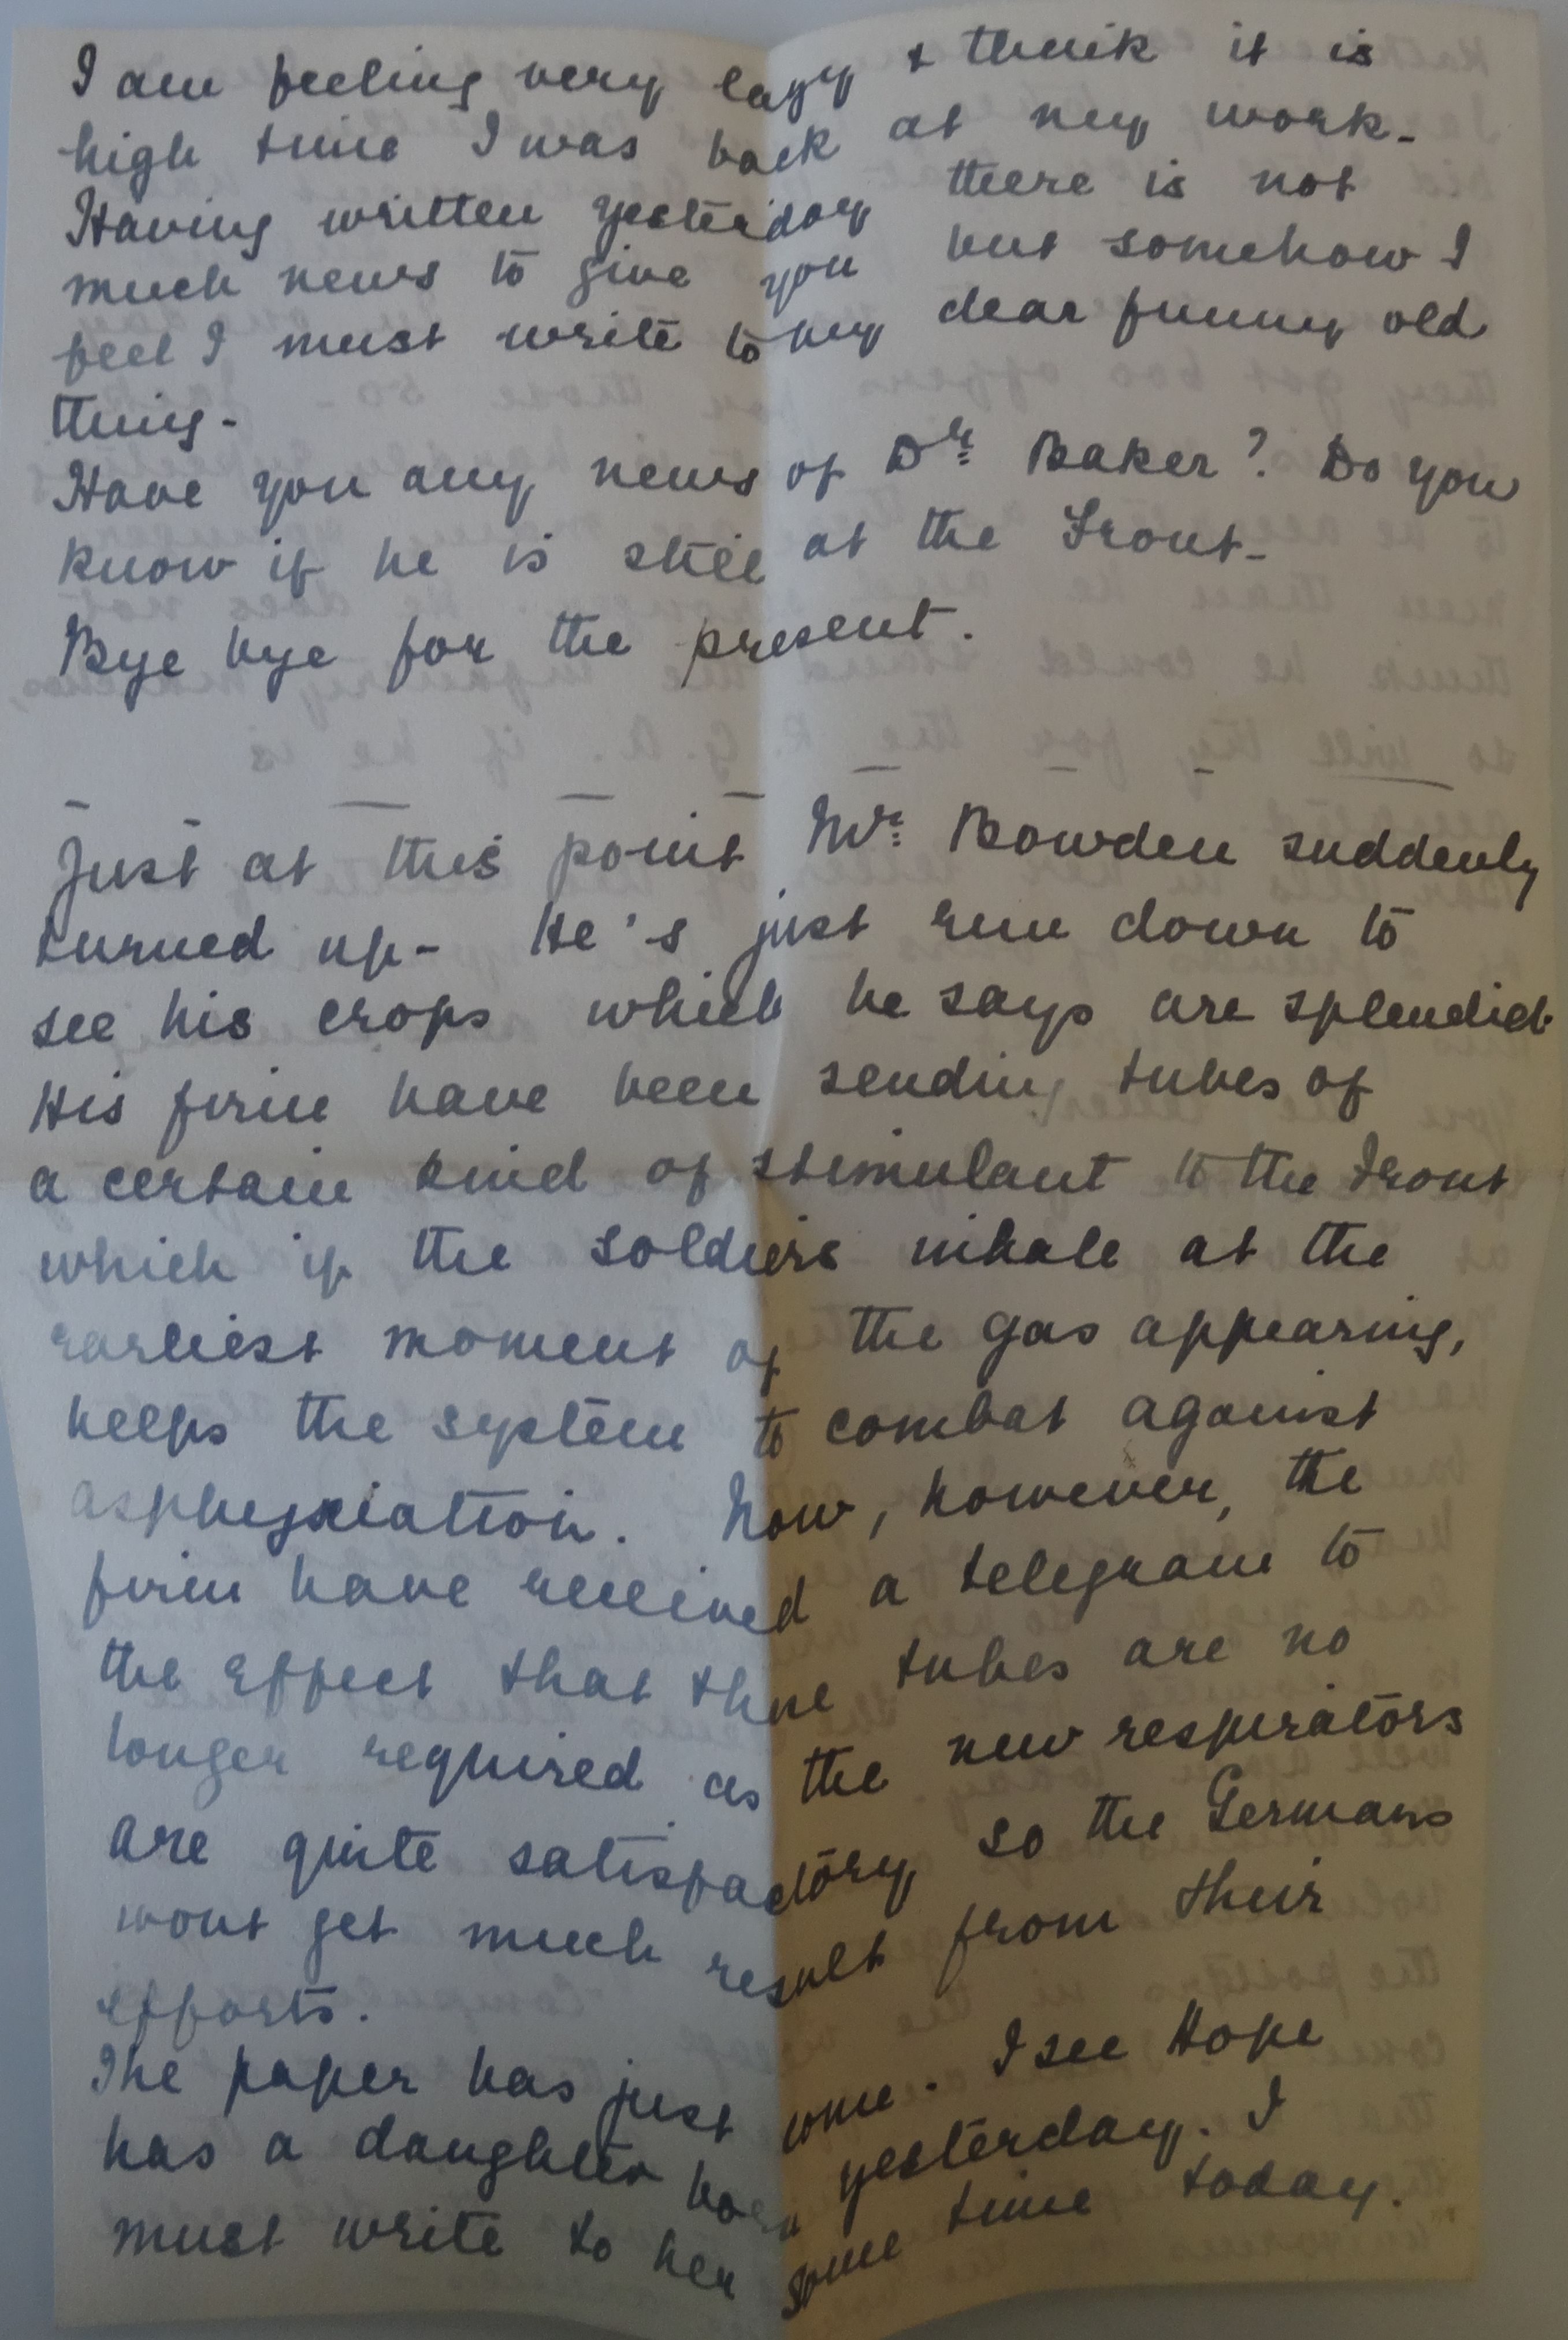 I am feeling very lazy & think it is
high time I was back at my work -
Having written yesterday there is not
much news to give you but somehow I
feel I must write to my dear funny old
thing -
Have you any news of Dr. Baker? Do you
know if he is still at the Front -
Bye bye for the present.
Just at this point Mr. Bowden suddenly
turned up - He's just run down to
see his crops which he says are splendid
His firm have been sending tubes of
a certain kind of stimulant to the Front
which if the soldiers inhale at the
earliest moment of the gas appearing,
helps the system to combat against
asphyxiation. Now, however, the
firm have received a telegram to
the effect that these tubes are no
longer required as the new respirators
are quite satisfactory so the Germans
wont get much result from their
efforts.
The paper has just come. I see Hope
has a daughter born yesterday. I
must write to her some time today.